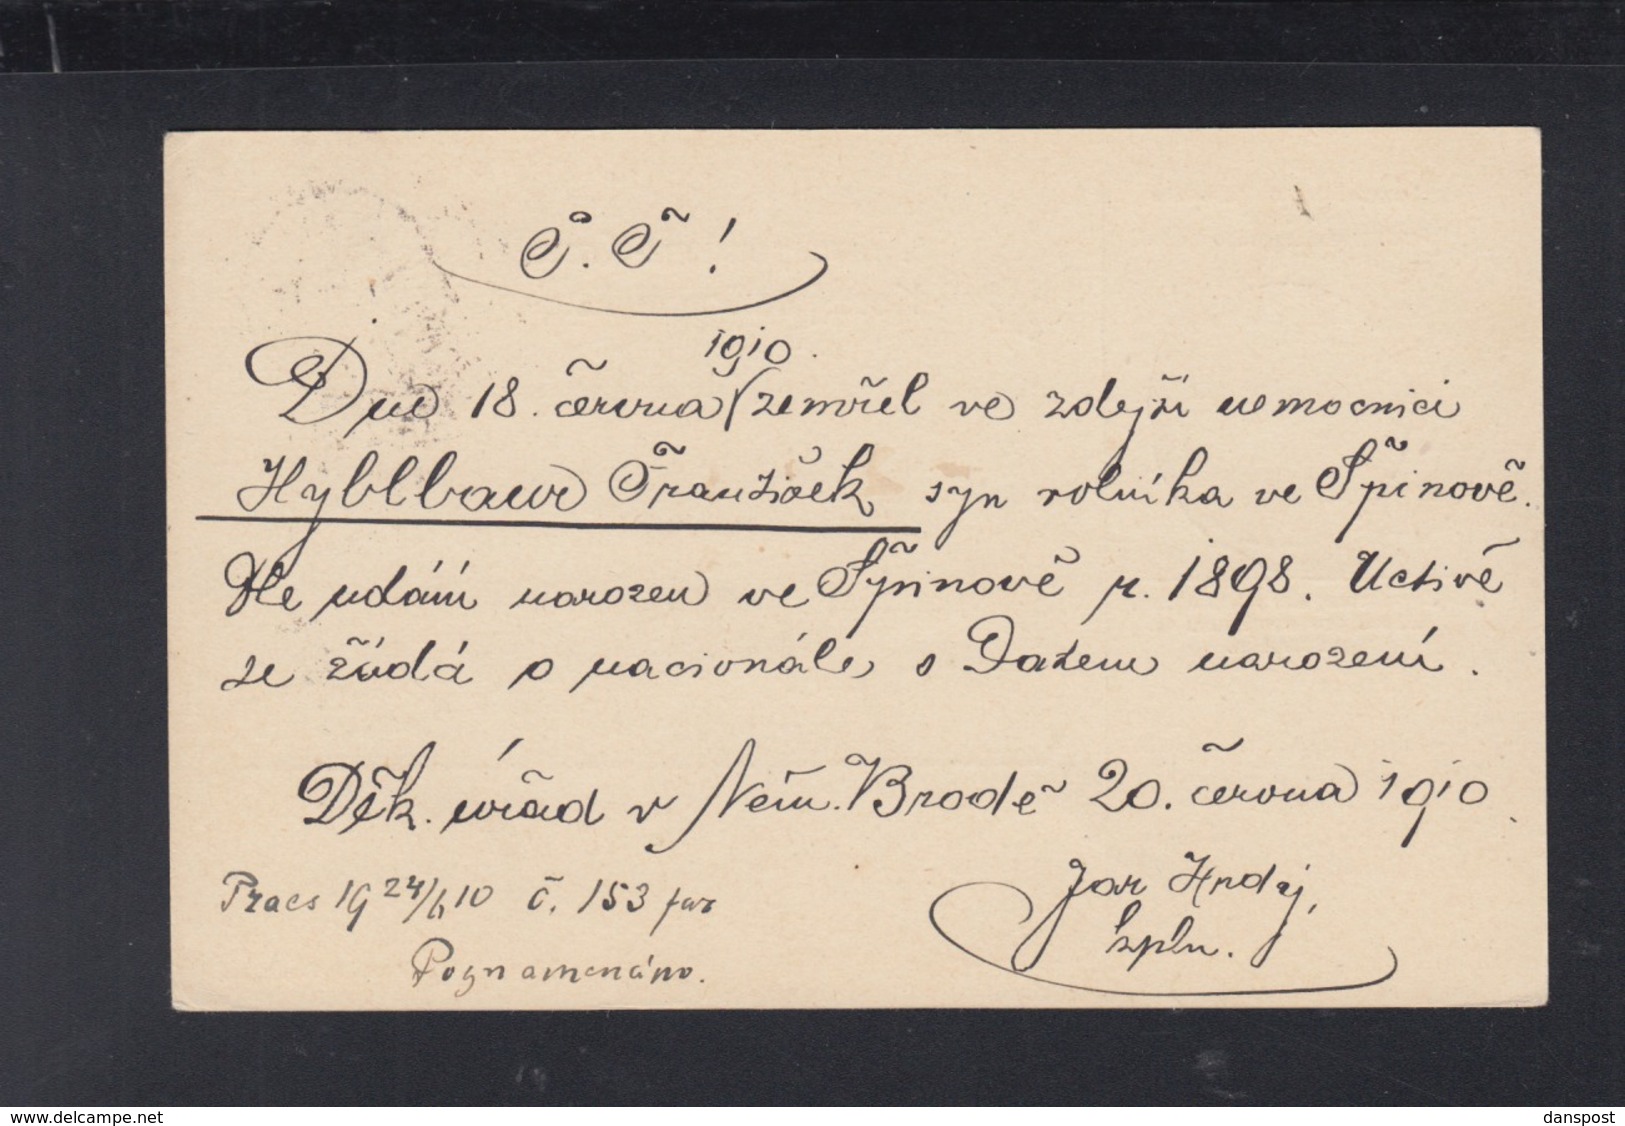 P. T. !
1910.
Dne 18. června zemřel ve zdejší nemocnici
Hyblbauer František syn rolníka ve Špinově.
Dle udání narozen ve Špinově r. 1898. Uctivě
se žádá o nacionále s Datem narození.
Děk. úřad v Něm. Brodě 20. června 1910.
Jar Hndej,
kpln.
Praes 19 24/6 10 č. 153 far
Poznamenáno.
www.delcampe.net
danspost